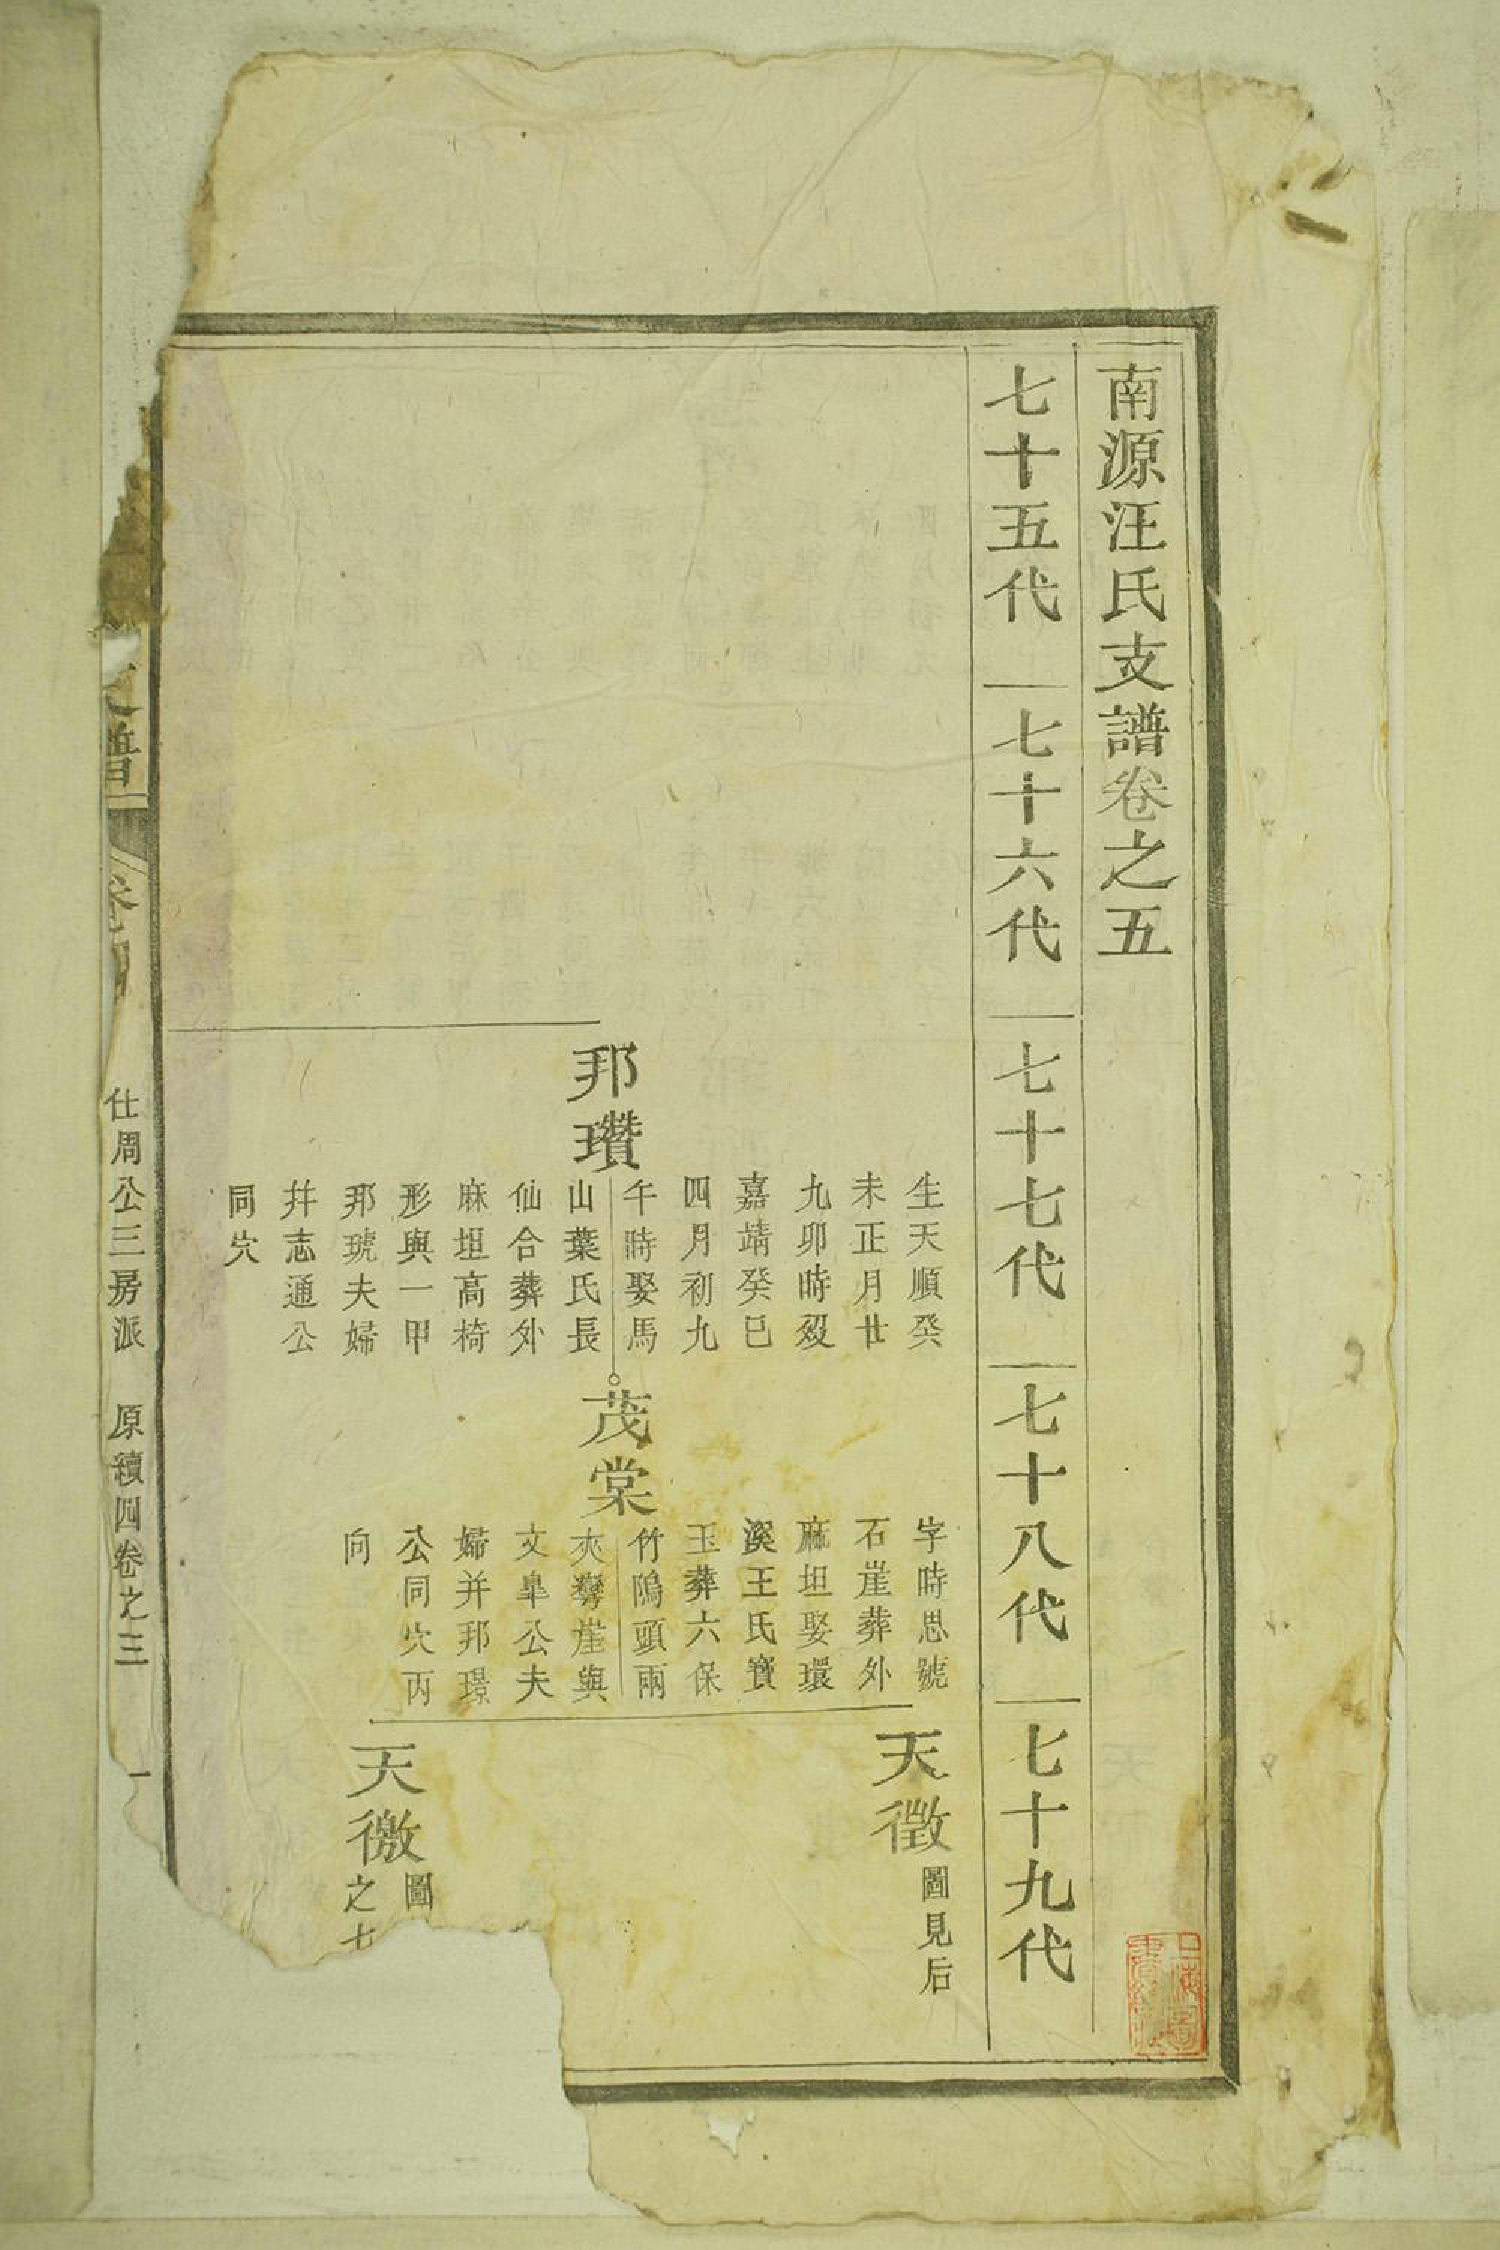 南源汪氏支譜卷之五
七十五代
七十六代
七十七代
七十八代
七十九代
邦瓚
生天順癸
未正月廿
九卯時歿
嘉靖癸巳
四月初九
午時娶馬
山葉氏長
仙合葬外
麻坦高椅
形與一甲
邦琥夫婦
并志通公
同穴
茂棠
字時思號
石崖葬外
麻坦娶環
溪王氏寶
玉葬六保
竹隝頭兩
夾彎崖與
文臯公夫
婦并邦璟
公同穴丙
向
天徵
圖見后
天徼
圖
之七
支譜
卷四
仕周公三房派 原續四卷之三
一